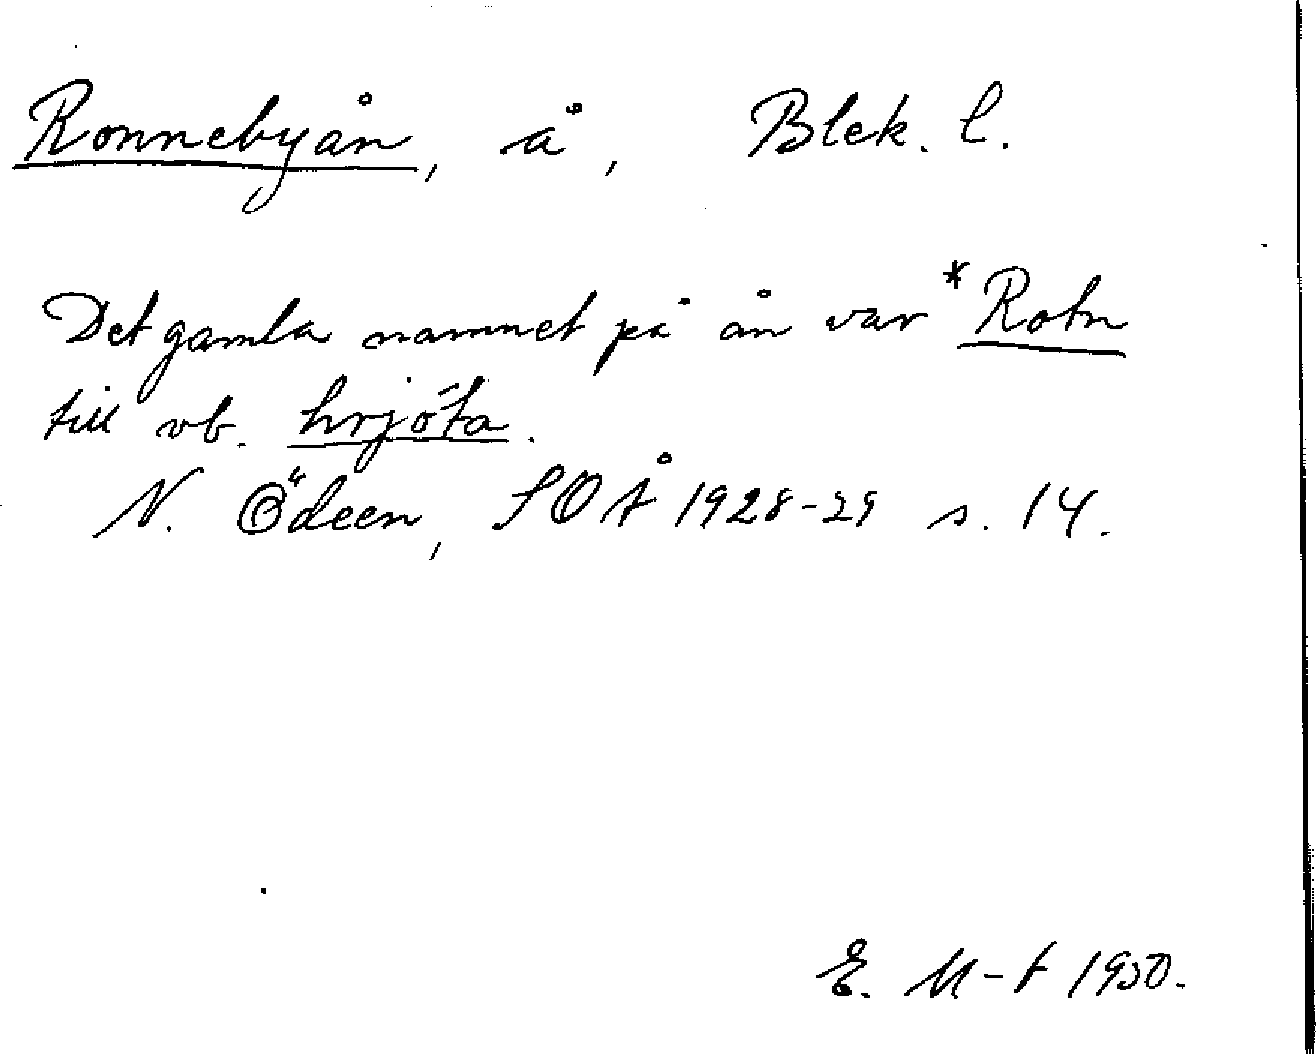 Ronnebyån, å, Blek. l.
Det gamla namnet på ån var *Rotn
till vb. hrjóta.
N. Ödeen, SOÅ 1928-29 s. 14.
E. M-t 1950.